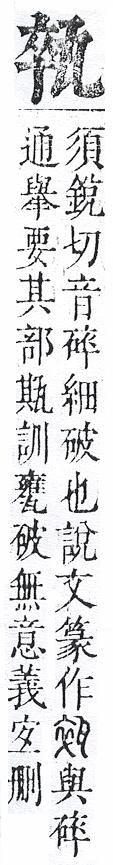 須銳切音碎細破也說文篆作與碎
通舉要其部訓甕破無意義宐刪